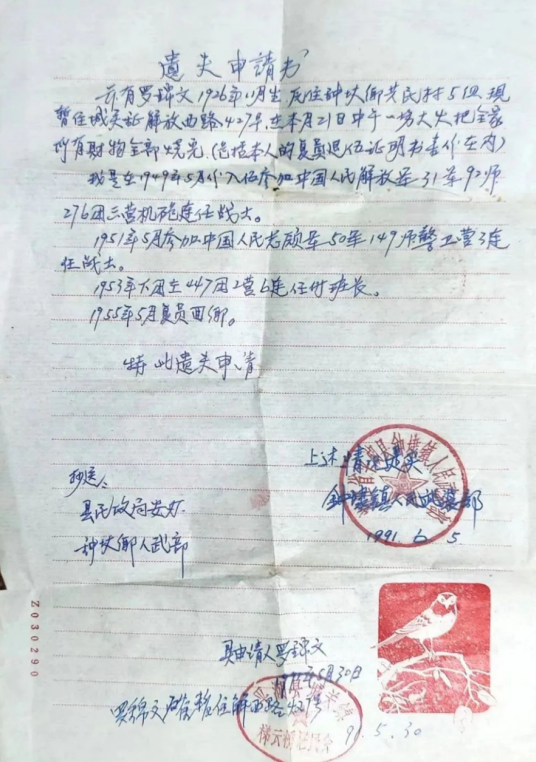 遗失申请书
兹有罗锦文1926年11月生 原住钟坎乡共民村5组 现
暂住城关镇解放西路427号,在本月21日中午一场大火把全家
所有财物全部烧光(包括本人的复员退伍证明书壹份在内)
我是在1949年5月份入伍参加中国人民解放军31军92师
276团三营机炮连任战士。
1951年5月参加中国人民志愿军50军149师警卫营3连
任战士。
1953年下团在447团2营6连任付班长。
1955年5月复员回乡。
特此遗失申请
上述情况属实
镇人民武装部
1991.6.5
抄送:
县民政局安办
乡人武部
具申请人罗锦文
年5月30日
罗锦文 暂住解西路 号
91.5.30
Z030290